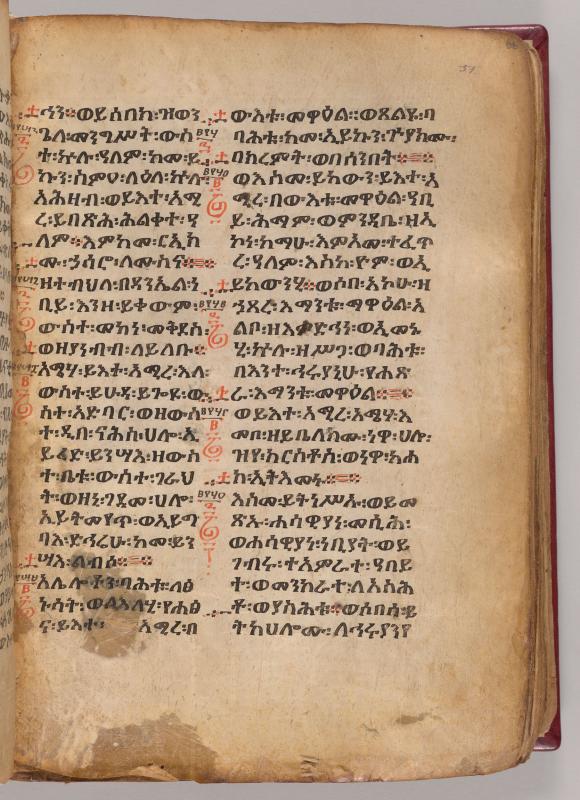 ኀንን፡ ወይሰበክ፡ ዝወን
ጌለ፡ መንግሥት፡ ውስ
ተ፡ ኵሉ፡ ዓለም፡ ከመ፡ ይ
ኩን፡ ስምዐ፡ ለዕለ፡ ኵሉ፡
አሕዛብ፡ ወይእተ፡ አሚ
ረ፡ ይበጽሕ፡ ሕልቀተ፡ ዓ
ለም፡ እምከመ፡ ርኢክ
ሙ፡ ኃሳሮ፡ ለሙስና፡
ዘተብህለ፡ በዳንኤል፡ ነ
ቢይ፡ እንዘ፡ ይቀውም፡
ውስተ፡ መካነ፡ መቅደስ፡
ወዘያነብብ፡ ለይለቡ፡
አሜሃ፡ ይእተ፡ አሚረ፡ እለ፡
ውስተ፡ ይሁዳ፡ ይጐዩ፡ ው
ስተ፡ አድባር፡ ወዘውስ
ተ፡ ዲበ፡ ናሕስ፡ ሀሎ፡ ኢ
ይረድ፡ ይንሣእ፡ ዘውስ
ተ፡ ቤቱ፡ ውስተ፡ ገራህ
ት፡ ወዘኒ፡ ገዳመ፡ ሀሎ፡
ኢይትመየጥ፡ ወኢይግ
ባእ፡ ድኅሬሁ፡ ከመ፡ ይን
ሣእ፡ ልብሶ፡
አሌሎን፡ ባሕቱ፡ ለፅ
ኑሳት፡ ወለእለሂ፡ የሐፅ
ና፡ ይእተ፡ አሚረ፡ በ
ውእቱ፡ መዋዕል፡ ወጸልዩ፡ ባ
ባሕቱ፡ ከመ፡ ኢይኩን፡ ጕያክሙ፡
በክረምት፡ ወበሰንበት፡
ወእስመ፡ ይከውን፡ ይእተ፡ አ
ሚረ፡ በውእቱ፡ መዋዕል፡ ዓቢ
ይ፡ ሕማም፡ ወምንዳቤ፡ ዘኢ
ኮነ፡ ከማሁ፡ እምአመ፡ ተፈጥ
ረ፡ ዓለም፡ እስከ፡ ዮም፡ ወኢ
ይከውንሂ፡ ወሶበ፡ አኮሁ፡ ዘ
ኃጸረ፡ እማንቱ፡ ማዋዕል፡ እ
ልቦ፡ ዘእምድኅነ፡ ወኢመኑ
ሂ፡ ኵሉ፡ ዘሥጋ፡ ወባሕቱ፡
በእንተ፡ ኅሩያኒሁ፡ የሐጽ
ራ፡ እማንቱ፡ መዋዕል፡
ወይእተ፡ አሚረ፡ አሜሃ፡ እ
መቦ፡ ዘይቤለክሙ፡ ነዋ፡ ሀሎ፡
ዝየ፡ ክርስቶስ፡ ወነዋ፡ ከሐ
ከ፡ ኢትእመኑ፡
እስመ፡ ይትነሥኡ፡ ወይመ
ጽኡ፡ ሐሳዊያነ፡ መሲሕ፡
ወሐሳዊያነ፡ ነቢያት፡ ወይ
ገብሩ፡ ተአምረተ፡ ዓበይ
ተ፡ ወመንክራተ፡ ለእስሕ
ቶ፡ ወያስሕቱ፡ ወሶበሰ፡ ይ
ትከሀሎሙ፡ ለኅሩያንየ